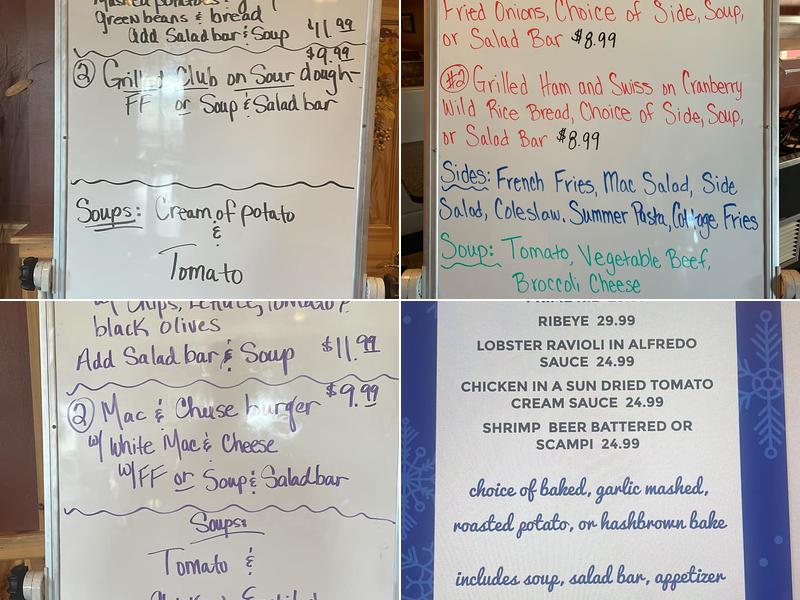 green beans & bread
Add Salad bar & Soup $11.99
$9.99
② Grilled Club on Sour dough
FF or Soup & Salad bar
Soups: Cream of potato
&
Tomato
Fried Onions, Choice of Side, Soup,
or Salad Bar $8.99
#2 Grilled Ham and Swiss on Cranberry
Wild Rice Bread, Choice of Side, Soup,
or Salad Bar $8.99
Sides: French Fries, Mac Salad, Side
Salad, Coleslaw, Summer Pasta, Cottage Fries
Soup: Tomato, Vegetable Beef,
Broccoli Cheese
w/ Chips, Lettuce, Tomato,
black olives
Add Salad bar & Soup $11.99
② Mac & Cheese burger $9.99
w/ White Mac & Cheese
w/ FF or Soup & Salad bar
Soups:
Tomato &
RIBEYE 29.99
LOBSTER RAVIOLI IN ALFREDO
SAUCE 24.99
CHICKEN IN A SUN DRIED TOMATO
CREAM SAUCE 24.99
SHRIMP BEER BATTERED OR
SCAMPI 24.99
choice of baked, garlic mashed,
roasted potato, or hashbrown bake
includes soup, salad bar, appetizer